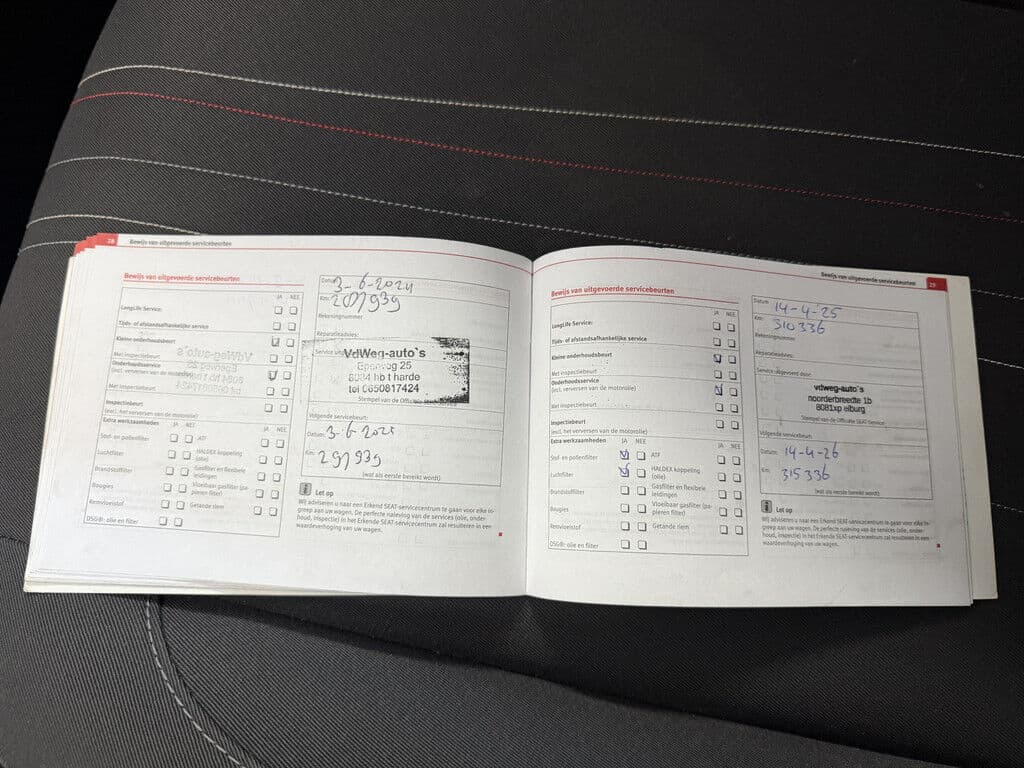 28 Bewijs van uitgevoerde servicebeurten
Bewijs van uitgevoerde servicebeurten
JA NEE
LongLife Service:
Tijds- of afstandsafhankelijke service
Kleine onderhoudsbeurt
Met inspectiebeurt
Onderhoudsservice
(incl. verversen van de motorolie)
Met inspectiebeurt
Inspectiebeurt
(excl. het verversen van de motorolie)
Extra werkzaamheden JA NEE JA NEE
Stof- en pollenfilter
ATF
Luchtfilter
HALDEX koppeling
(olie)
Brandstoffilter
Gasfilter en flexibele
leidingen
Bougies
Vloeibaar gasfilter (pa-
pieren filter)
Remvloeistof
Getande riem
DSG®: olie en filter
Datum 3-6-2024
Km:
Rekeningnummer
Reparatieadvies:
VdWeg-auto`s
Eperweg 25
8084 hb t harde
tel 0650817424
Stempel van de Officiële SEAT-Service
Volgende servicebeurt:
Datum: 3-6 2025
Km:
(wat als eerste bereikt wordt)
Let op
Wij adviseren u naar een Erkend SEAT-servicecentrum te gaan voor elke in-
greep aan uw wagen. De perfecte naleving van de services (olie, onder-
houd, inspectie) in het Erkende SEAT-servicecentrum zal resulteren in een
waardeverhoging van uw wagen.
Bewijs van uitgevoerde servicebeurten 29
Bewijs van uitgevoerde servicebeurten
JA NEE
LongLife Service:
Tijds- of afstandsafhankelijke service
Kleine onderhoudsbeurt
Met inspectiebeurt
Onderhoudsservice
(incl. verversen van de motorolie)
Met inspectiebeurt
Inspectiebeurt
(excl. het verversen van de motorolie)
Extra werkzaamheden JA NEE JA NEE
Stof- en pollenfilter
ATF
Luchtfilter
HALDEX koppeling
(olie)
Brandstoffilter
Gasfilter en flexibele
leidingen
Bougies
Vloeibaar gasfilter (pa-
pieren filter)
Remvloeistof
Getande riem
DSG®: olie en filter
Datum 14-4-25
Km: 310336
Rekeningnummer
Reparatieadvies:
Service uitgevoerd door:
vdweg-auto`s
noorderbreedte 1b
8081xp elburg
Stempel van de Officiële SEAT-Service
Volgende servicebeurt:
Datum: 14-4-26
Km: 315336
(wat als eerste bereikt wordt)
Let op
Wij adviseren u naar een Erkend SEAT-servicecentrum te gaan voor elke in-
greep aan uw wagen. De perfecte naleving van de services (olie, onder-
houd, inspectie) in het Erkende SEAT-servicecentrum zal resulteren in een
waardeverhoging van uw wagen.